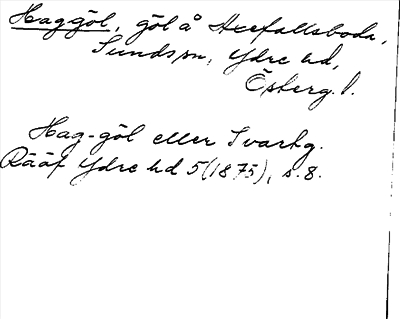 Haggöl, göl å Axefallsboda,
Sunds sn, Ydre hd,
Österg. l.
Hag-göl eller Svartg.
Rääf Ydre hd 5 (1875), s. 8.